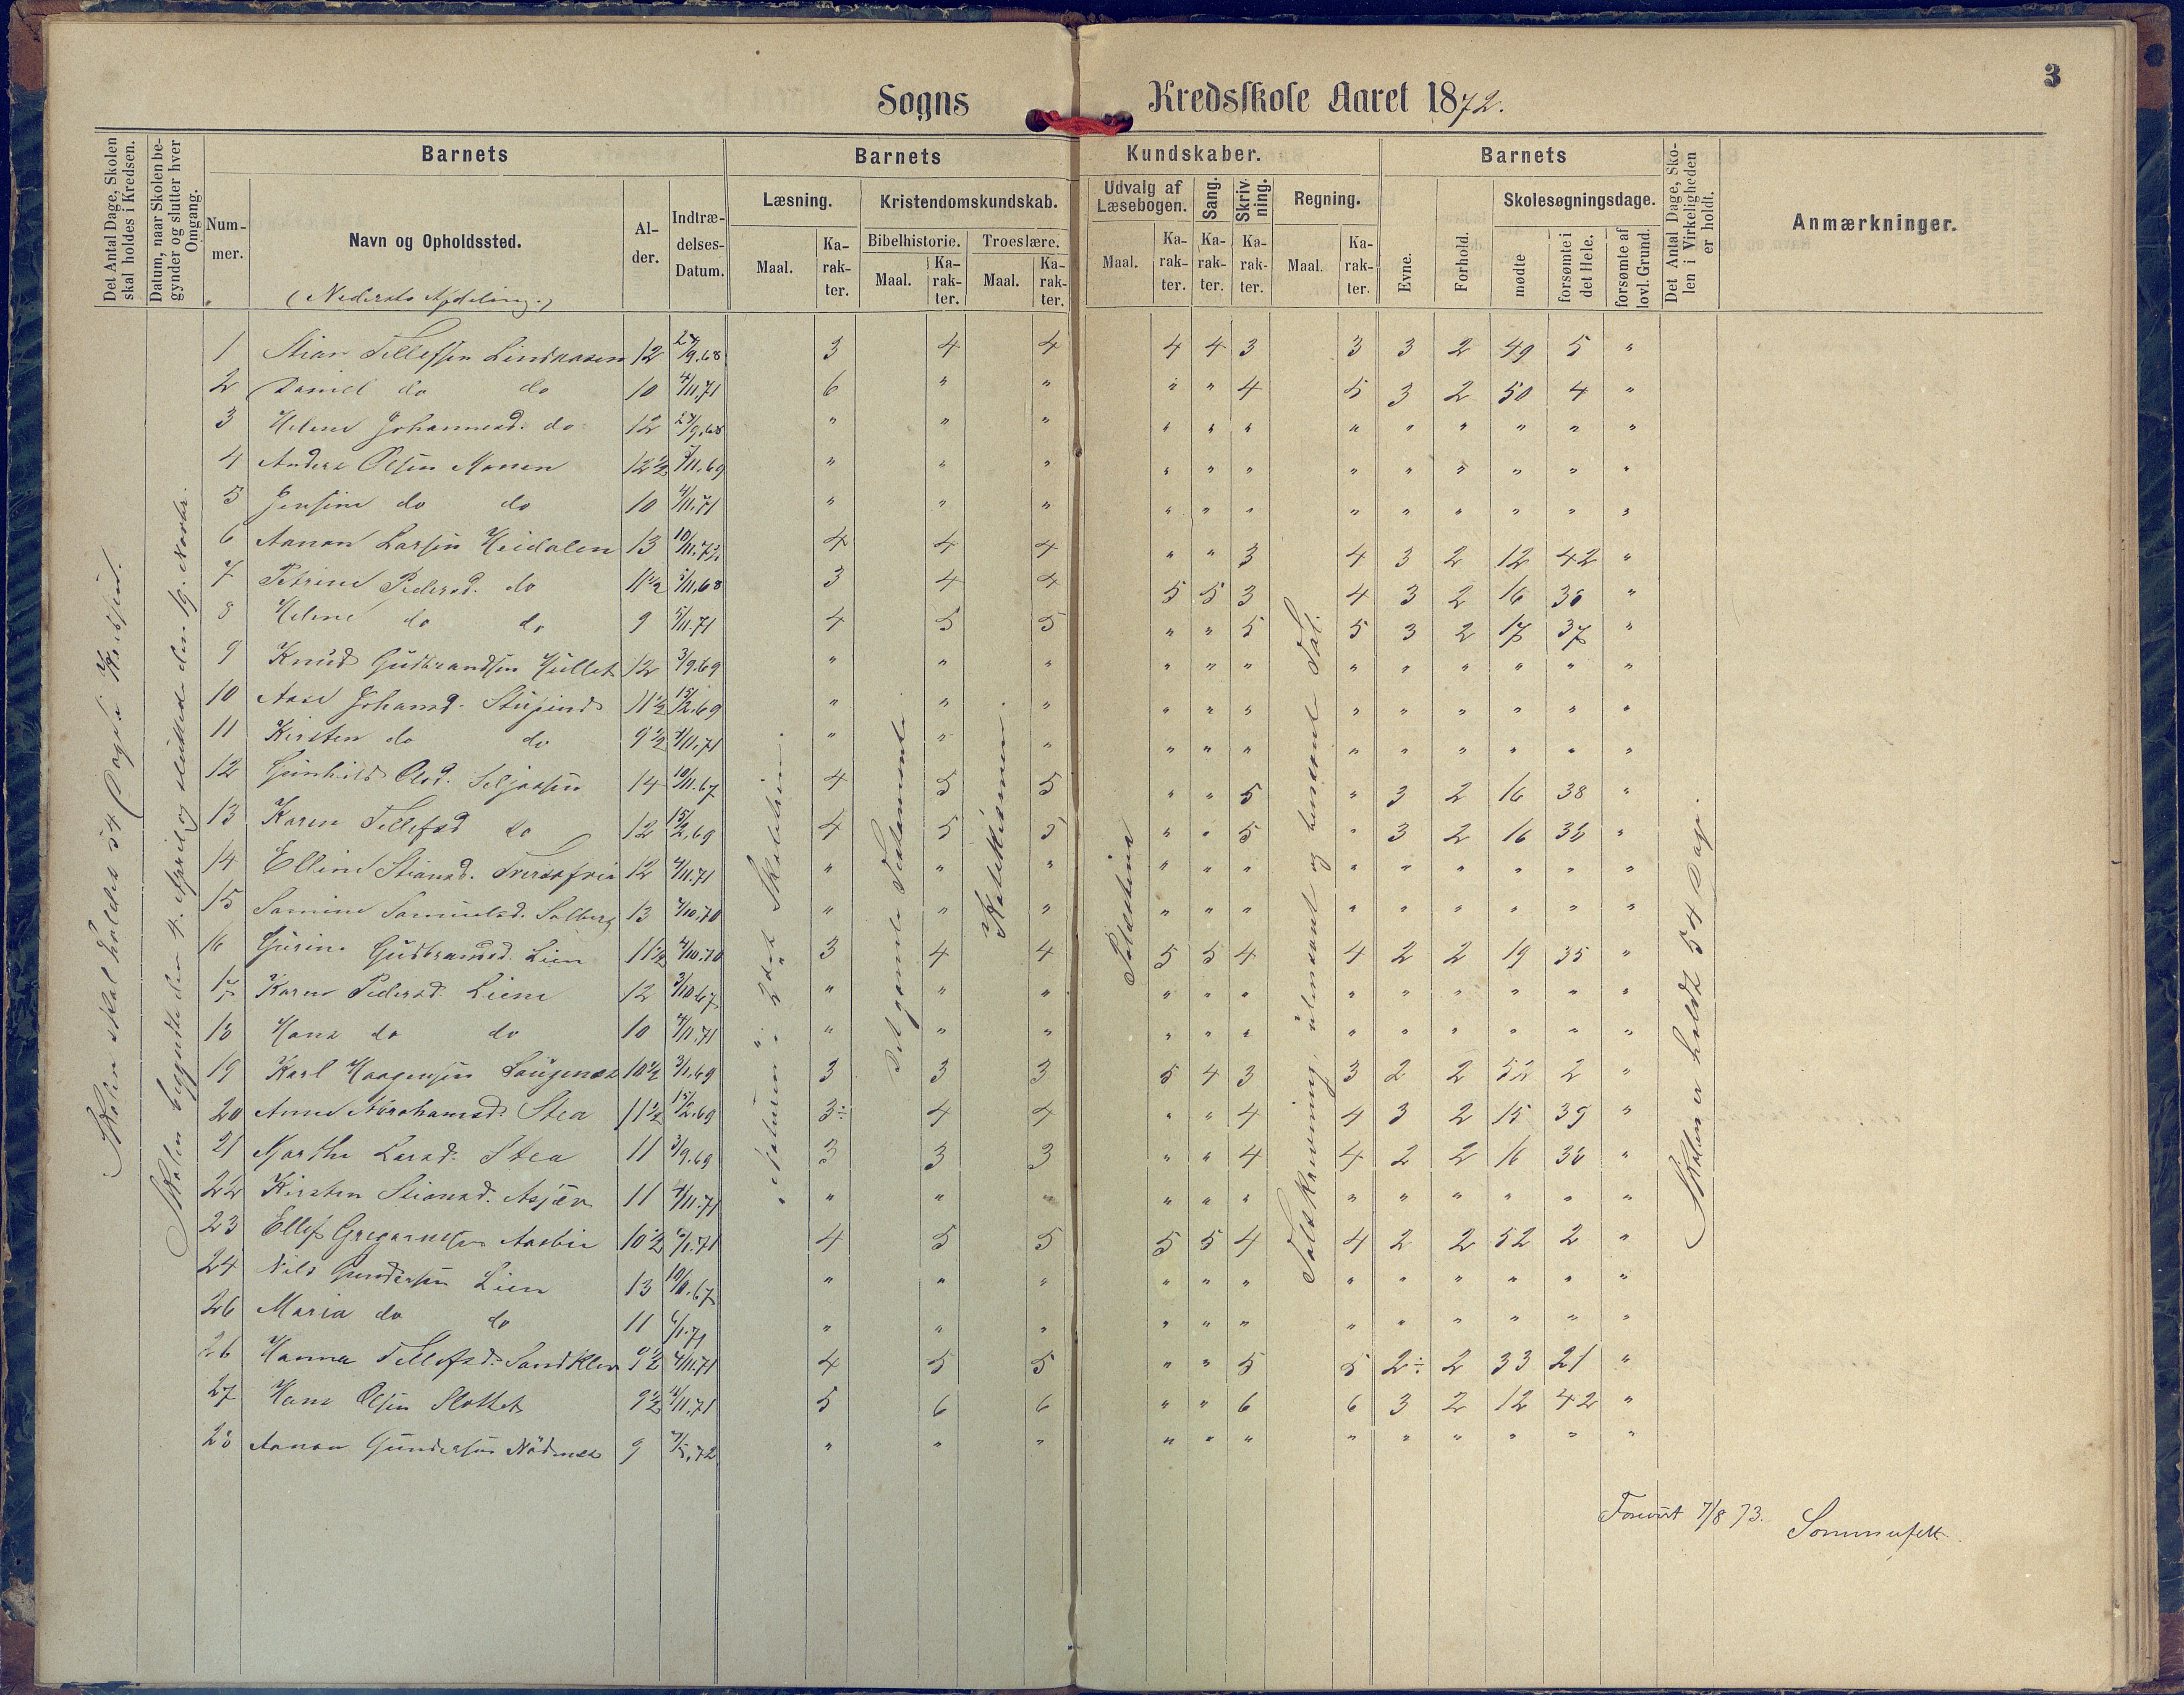 3
Sogns Kredsskole Aaret 1872.
Det Antal Dage, Skolen skal holdes i Kredsen.
Datum, naar Skolen begynder og slutter hver Omgang.
Barnets
Nummer.
Navn og Opholdssted.
(Nederste Afdeling.)
Alder.
Indtrædelses-Datum.
Barnets Kundskaber.
Læsning.
Maal.
Karakter.
Kristendomskundskab.
Bibelhistorie.
Maal.
Karakter.
Troeslære.
Maal.
Karakter.
Udvalg af Læsebogen.
Maal.
Karakter.
Sang.
Karakter.
Skrivning.
Karakter.
Regning.
Maal.
Karakter.
Barnets
Evne.
Forhold.
Skolesøgningsdage.
mødte
forsømte i det Hele.
forsømte af lovl. Grund.
Det Antal Dage, Skolen i Virkeligheden er holdt.
Anmærkninger.
Skolen skal holdes 54 Dage i Kredsen.
Skolen begyndte den 4. April og sluttede den 19. Novbr.
Skoletrin
Det gamle Testamente
Katekismen.
Palæstina
Talskrivning, utenadl og
Skolen er holdt 54 Dage.
1 Stian Tellefsen Lindaasen 12 27/9.68 3 4 4 4 4 3 3 3 2 49 5 "
2 Daniel do do 10 4/11.71 6 " " " " 4 5 3 2 50 4 "
3 Helene Johannesd. do 12 27/9.68 " " " " " " " " " " " "
4 Anders Olsen Monen 12½ /11.69 " " " " " " " " " " " "
5 Jensine do do 10 4/11.71 " " " " " " " " " " " "
6 Aanon Larsen Heidalen 13 10/11.72 4 4 4 " " 3 4 3 2 12 42 "
7 Petrine Pedersd. do 11½ 5/11.68 3 4 4 5 5 3 4 3 2 16 38 "
8 Helene do do 9 5/11.71 4 5 5 " " 5 5 3 2 17 37 "
9 Knud Gudbrandsen Hullet 12 3/9.69 " " " " " " " " " " " "
10 Aase Johansd. 11½ 15/2.69 " " " " " " " " " " " "
11 Kirsten do do 9½ 4/11.71 " " " " " " " " " " " "
12 Gunhild Olsd. Seljaasen 14 10/11.67 4 5 5 " " 5 " 3 2 16 38 "
13 Karen Tellefsd do 12 15/2.69 4 5 5 " " 5 " 3 2 16 38 "
14 Elline Stiansd. 12 4/11.71 " " " " " " " " " " " "
15 Samine Samuelsd. Solberg 13 4/10.70 " " " " " " " " " " " "
16 Gurine Gudbrandsd. Lien 11½ 4/10.70 3 4 4 5 5 4 4 2 2 19 35 "
17 Karen Pedersd. Liene 12 3/10.67 " " " " " " " " " " " "
18 Hans do do 10 4/11.71 " " " " " " " " " " " "
19 Karl Haagensen Laugenæs 10½ 3/1.69 3 3 3 5 4 3 3 2 2 52 2 "
20 Anne Abrahamsd. Stea 11½ 15/2.69 3÷ 4 4 " " 4 4 3 2 15 39 "
21 Marthe Larsd. Stea 11 3/9.69 3 3 3 " " 4 4 2 2 16 38 "
22 Kirsten Stiansd. Asjær 11 4/11.71 " " " " " " " " " " " "
23 Ellef Gregersen Aasbie 10½ 6/1.71 4 5 5 5 5 4 4 2 2 52 2 "
24 Nils Gundersen Lien 13 10/11.67 " " " " " " " " " " " "
26 Maria do do 11 6/1.71 " " " " " " " " " " " "
26 Hanna Tellefsd. Sandklev 9½ 4/11.71 4 5 5 " " 5 5 2÷ 2 33 21 "
27 Hans Olsen Slottet 9½ 4/11.71 5 6 6 " " 6 6 3 2 12 42 "
28 Aanon Gundersen Nødenæs 9 /5.72 " " " " " " " " " " " "
Forevist 7/8 73. Sommerfelt